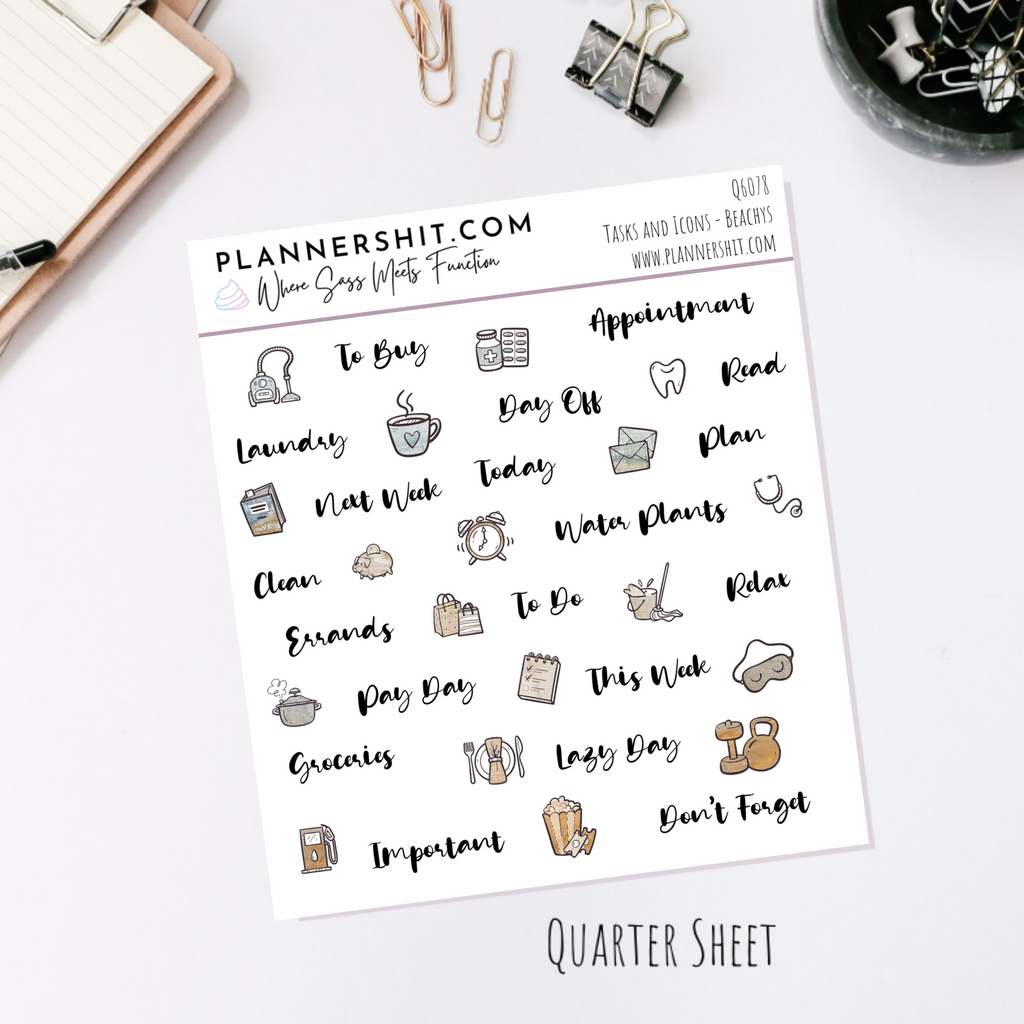 PLANNERSHIT.COM
Where Sass Meets Function
Q6078
Tasks and Icons - Beachys
www.plannershit.com
To Buy
Appointment
Read
Day Off
Laundry
Plan
Today
Next Week
Water Plants
Clean
Relax
To Do
Errands
This Week
Pay Day
Lazy Day
Groceries
Don't Forget
Important
Quarter Sheet